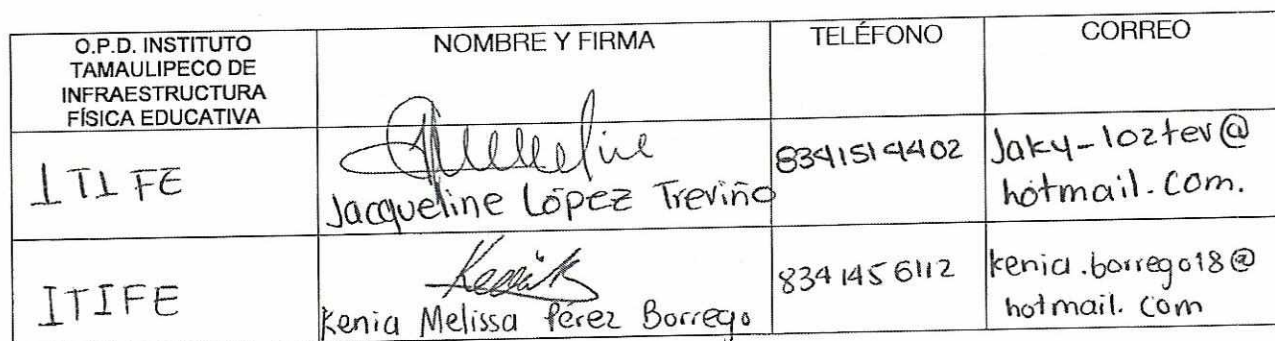 O.P.D. INSTITUTO
TAMAULIPECO DE
INFRAESTRUCTURA
FÍSICA EDUCATIVA
NOMBRE Y FIRMA
TELÉFONO
CORREO
ITIFE
Jacqueline
Jacqueline López Treviño
8341514402
Jaky-loztev@
hotmail.com.
ITIFE
Kenia Melissa Pérez Borrego
8341456112
kenia.borrego18@
hotmail.com